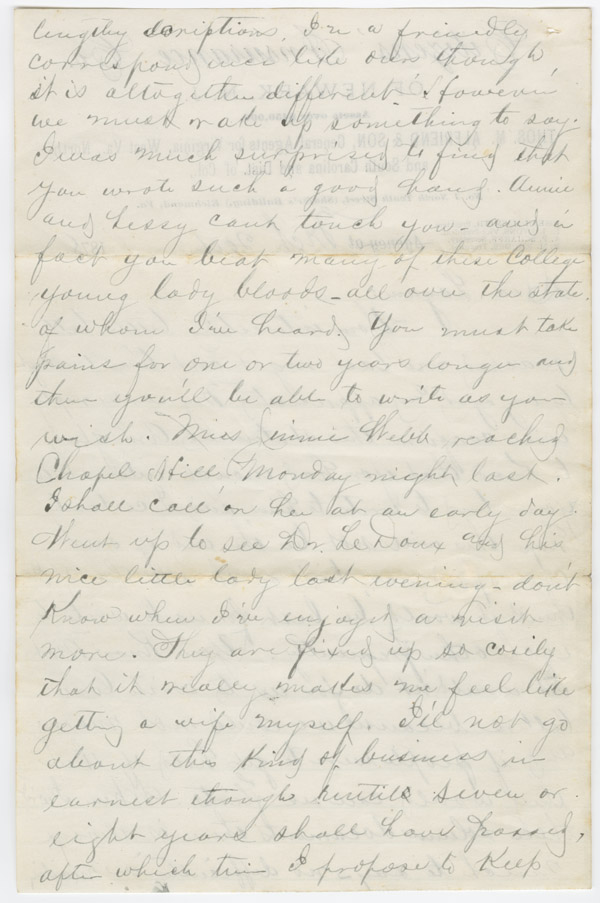 lengthy scriptions, I'm a friendly
correspondence like ours though
it is altogether different. However
we must rake up something to say.
I was much surprised to find that
you wrote such a good hand. Annie
and Lissy can't touch you - and in
fact you beat many of these College
young lady bloods - all over the state.
of whom I've heard. You must take
pains for one or two years longer and
then you'll be able to write as you
wish. Miss Jinnie Webb reached
Chapel Hill Monday night last.
I shall call on her at an early day.
Went up to see Dr. Le Doux and his
nice little lady last evening - don't
know when I've enjoyed a visit
more. They are fixed up so cosily
that it really makes me feel like
getting a wife myself. I'll not go
about this kind of business in
earnest though until seven or
eight years shall have passed,
after which time I propose to keep